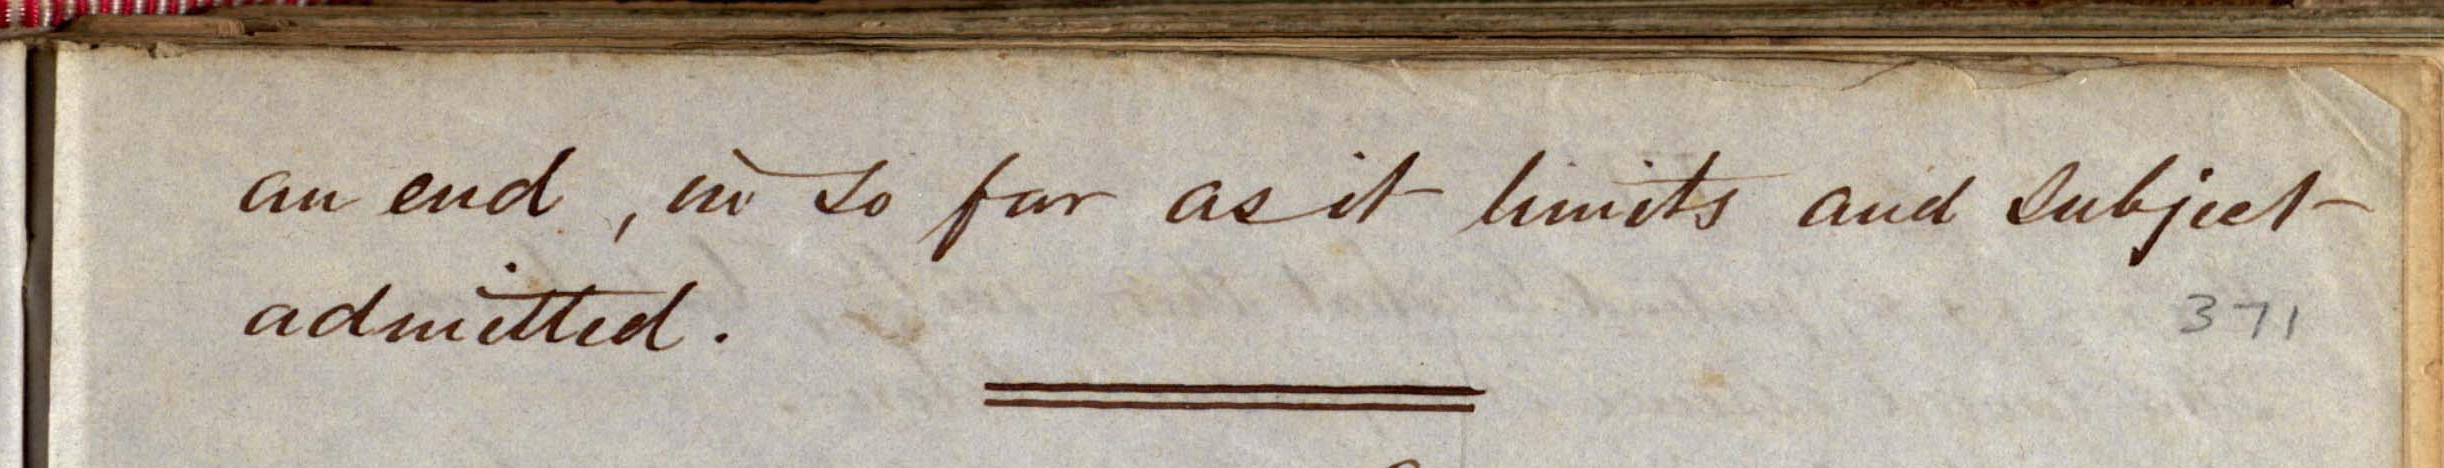 an end, in so far as it limits and subject
admitted.
371